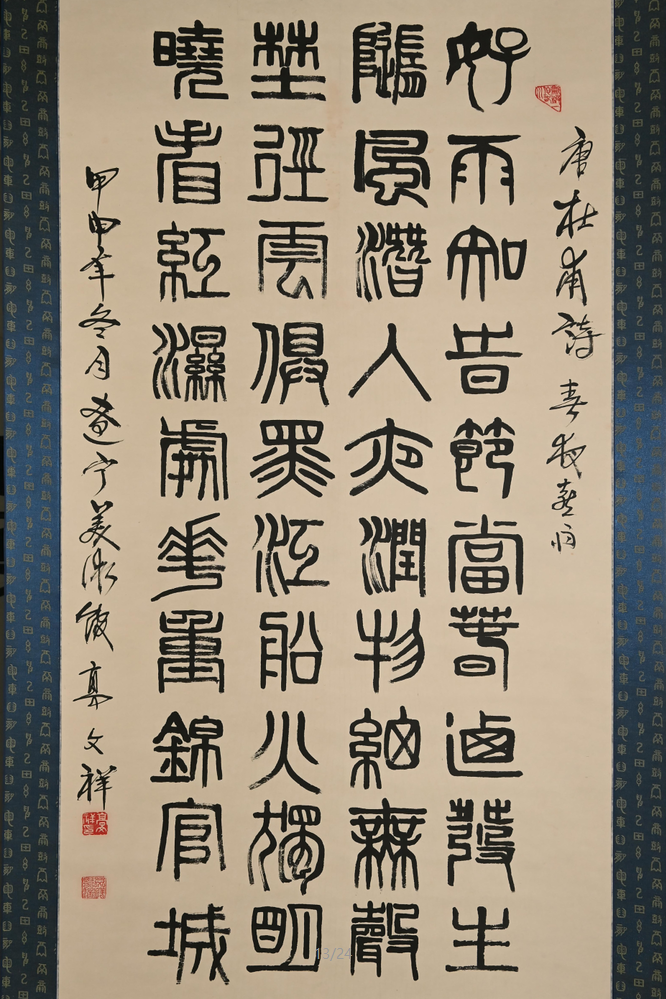 唐杜甫詩 春夜喜雨
好雨知旹節當萅迺發生
隨風潛入夜潤物細無聲
埜徑雲俱黑江船火獨朙
曉看紅濕處華重錦官城
甲申年冬月遼宁美術館高文祥
13/24